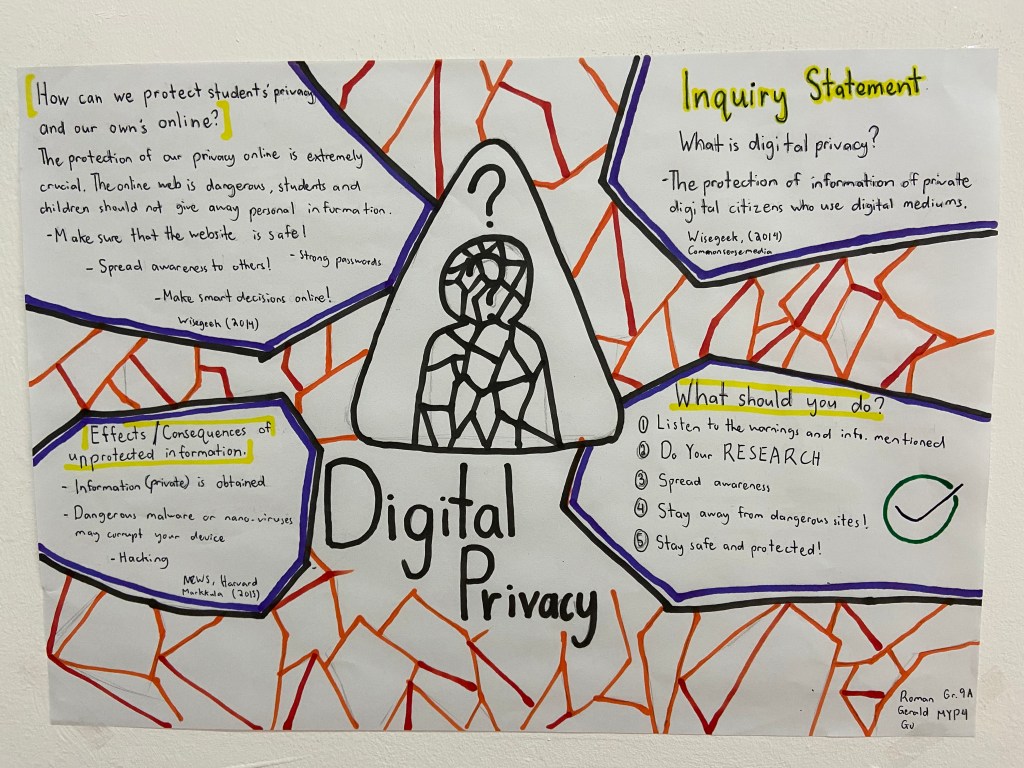 How can we protect students' privacy
and our own's online?
The protection of our privacy online is extremely
crucial. The online web is dangerous, students and
children should not give away personal information.
- Make sure that the website is safe!
- Spread awareness to others!
- Strong passwords
- Make smart decisions online!
Wisegeek (2014)
Inquiry Statement
What is digital privacy?
- The protection of information of private
digital citizens who use digital mediums.
Wisegeek, (2014)
Commonsensemedia
?
?
Digital
Privacy
Effects/Consequences of
unprotected information.
- Information (private) is obtained
- Dangerous malware or nano-viruses
may corrupt your device
- Hacking
NEWS, Harvard
Markkula (2015)
What should you do?
① Listen to the warnings and info. mentioned
② Do Your RESEARCH
③ Spread awareness
④ Stay away from dangerous sites!
⑤ Stay safe and protected!
Roman Gr.9A
Gerald MYP4
Gu